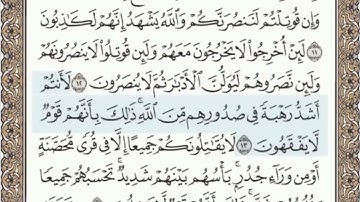 وَإِن قُوتِلْتُمْ لَنَنصُرَنَّكُمْ وَٱللَّهُ يَشْهَدُ إِنَّهُمْ لَكَٰذِبُونَ
١١ لَئِنْ أُخْرِجُوا۟ لَا يَخْرُجُونَ مَعَهُمْ وَلَئِن قُوتِلُوا۟ لَا يَنصُرُونَهُمْ
وَلَئِن نَّصَرُوهُمْ لَيُوَلُّنَّ ٱلْأَدْبَٰرَ ثُمَّ لَا يُنصَرُونَ ١٢ لَأَنتُمْ
أَشَدُّ رَهْبَةً فِى صُدُورِهِم مِّنَ ٱللَّهِ ۚ ذَٰلِكَ بِأَنَّهُمْ قَوْمٌ
لَّا يَفْقَهُونَ ١٣ لَا يُقَٰتِلُونَكُمْ جَمِيعًا إِلَّا فِى قُرًى مُّحَصَّنَةٍ
أَوْ مِن وَرَآءِ جُدُرٍۭ ۚ بَأْسُهُم بَيْنَهُمْ شَدِيدٌ ۚ تَحْسَبُهُمْ جَمِيعًا